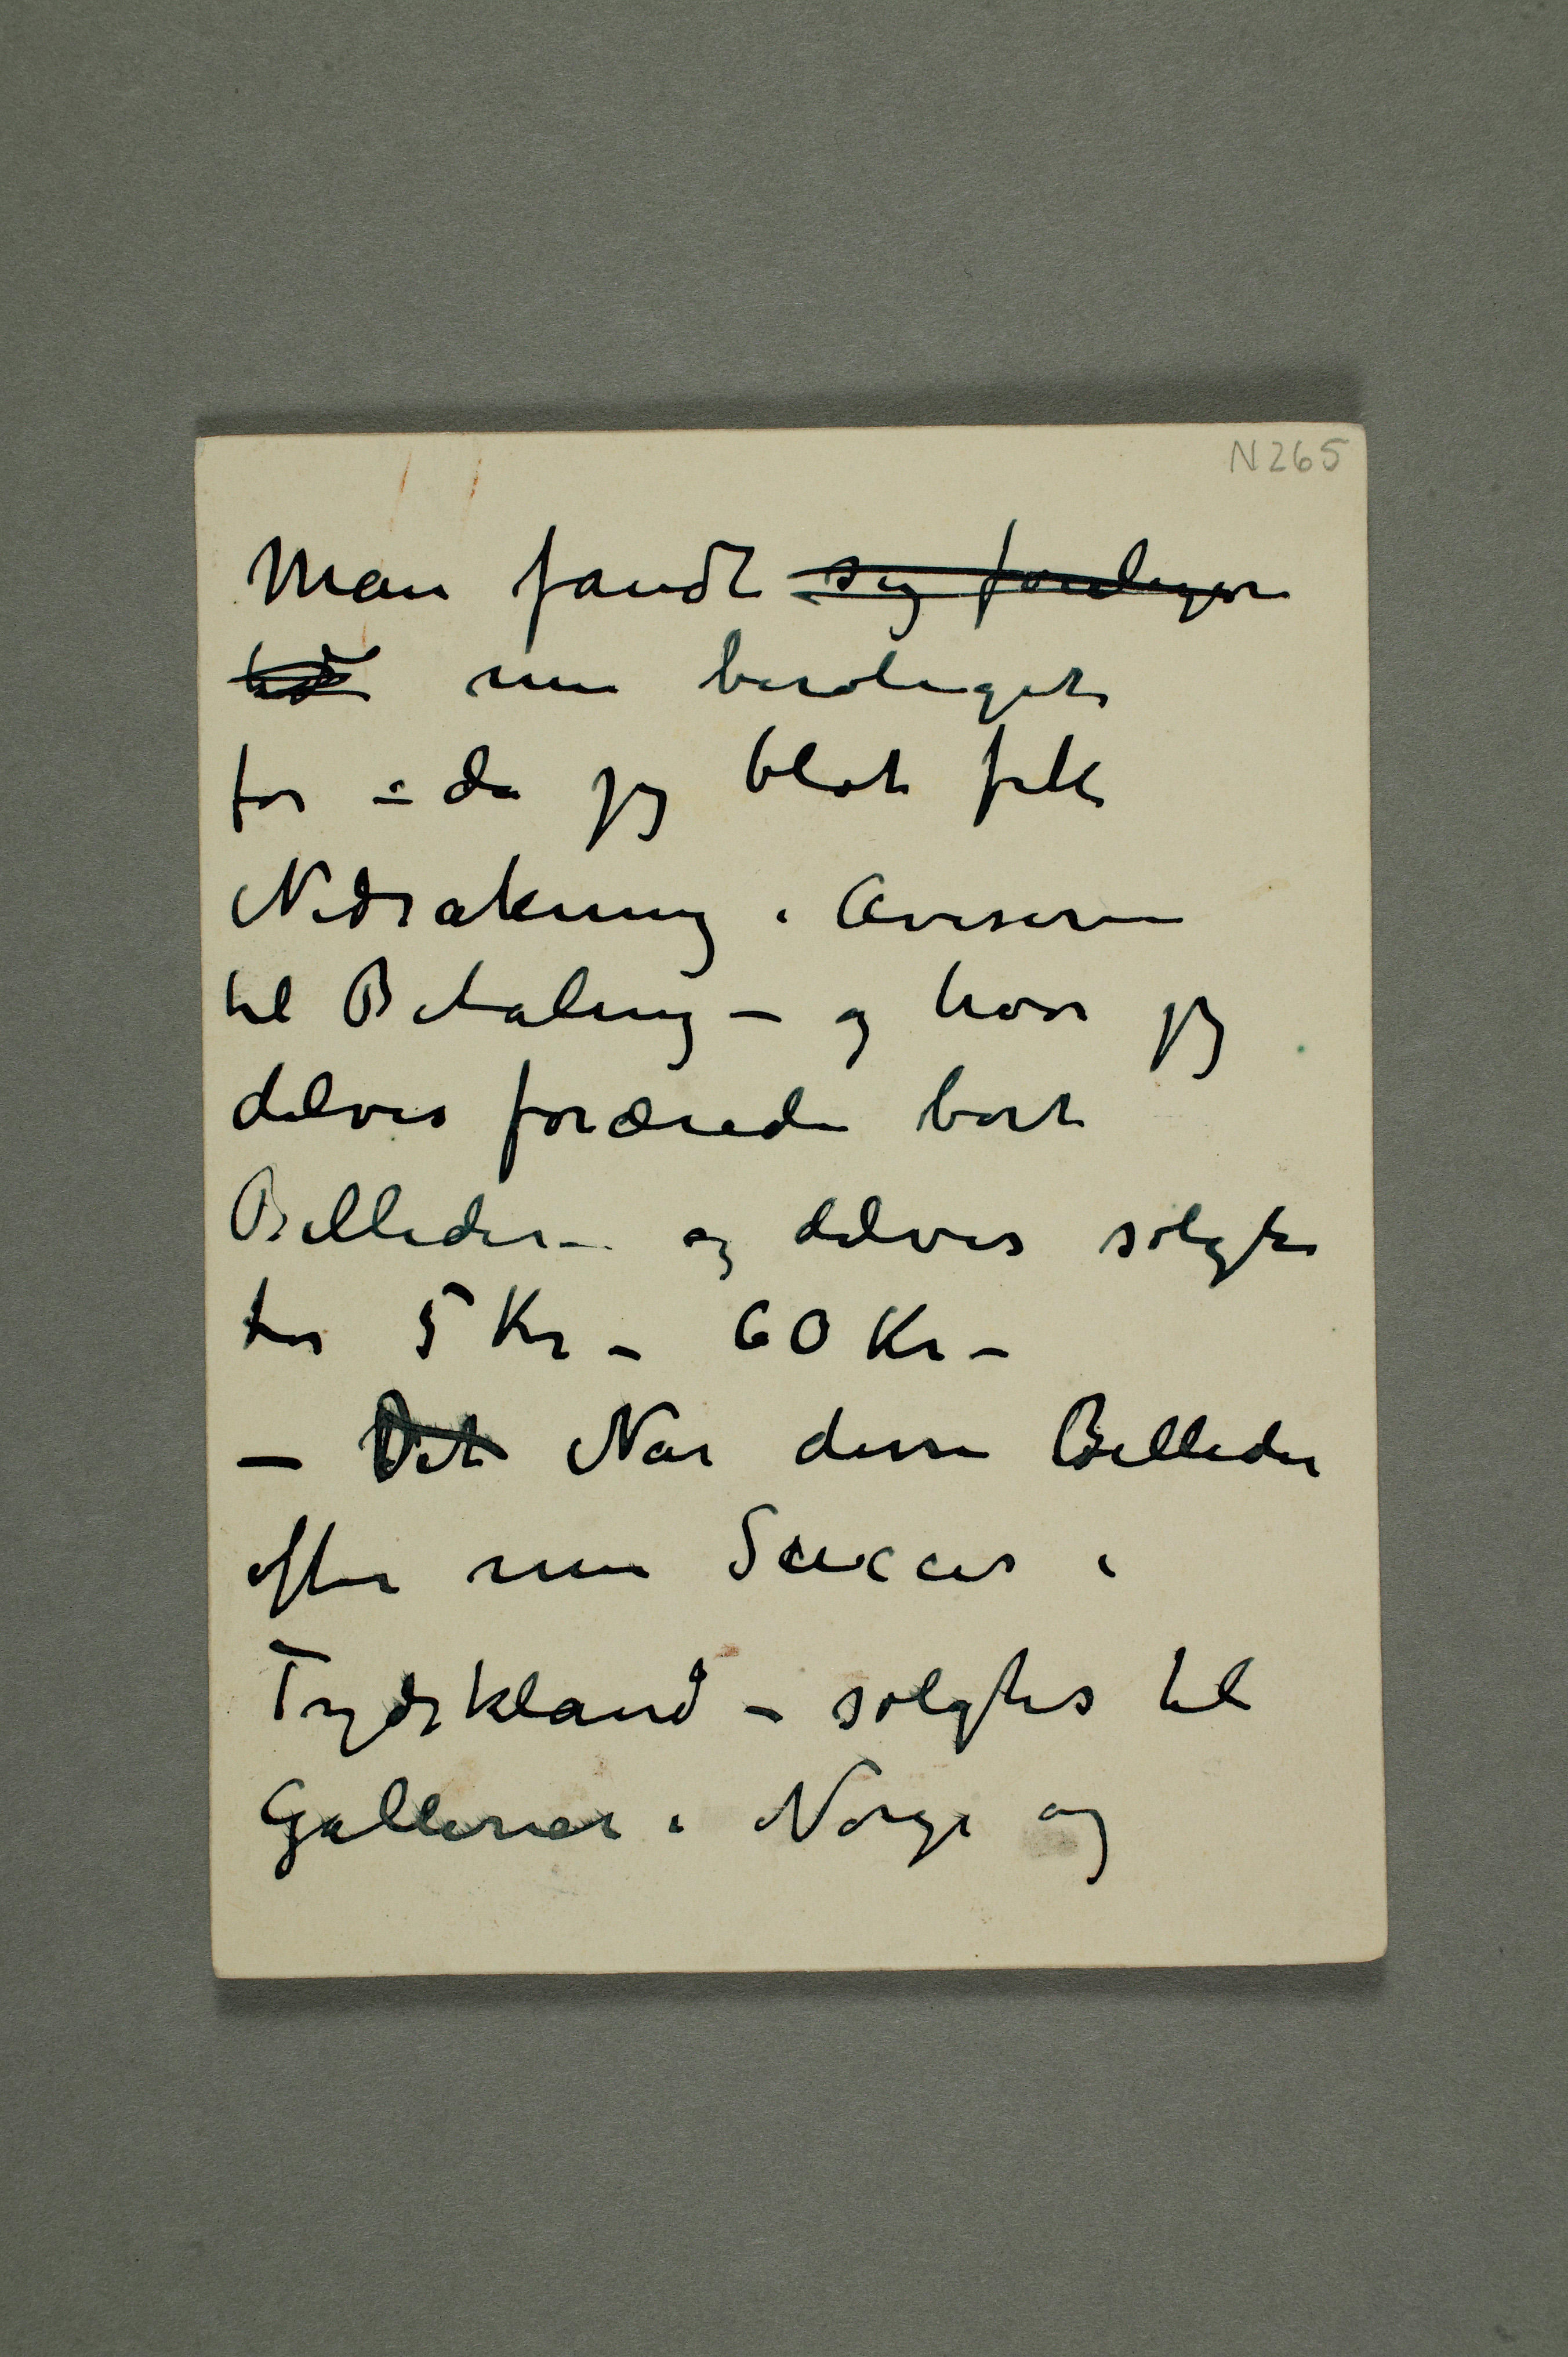 N 265
Man fandt sig
min berøliget
for – da jeg blot fik
Nedrakning i Aviserne
til Betaling – og hvor jeg
delvis forærede bort
Billeder – og delvis solgte
for 5 Kr – 60 Kr –
– Det Når disse Billeder
efter min Succes i
Tydskland – solgtes til
Gallerier i Norge og